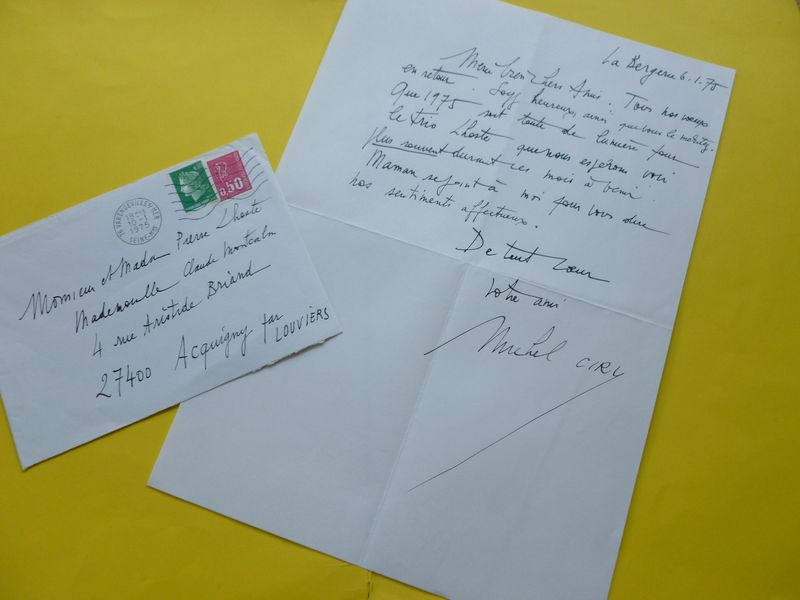 La Bergerie 6.1.75
Merci bien chers Amis. Tous nos voeux
en retour. Soyez heureux, ainsi que vous le méritez.
Que 1975 soit toute de lumière pour
le trio Lhoste que nous espérons voir
plus souvent durant ces mois à venir.
Maman se joint à moi pour vous dire
nos sentiments affectueux.
De tout coeur
Votre ami
Michel CIRY
0,50
76 VARENGEVILLE S/MER
10-1
1975
SEINE-MME
Monsieur et Madame Pierre Lhoste
Mademoiselle Claude Montcalm
4 rue Aristide Briand
27400 Acquigny par
LOUVIERS